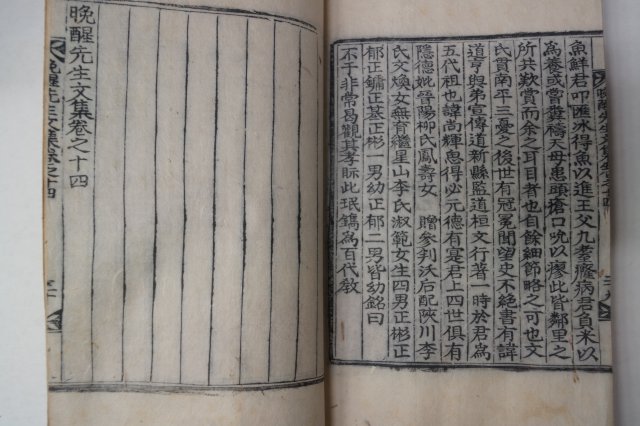 魚鮮君叩匯氷得魚以進王父凡耋癃病君負米以
為養或嘗糞禱天母患頭瘡口吮以瘳此皆鄰里之
所共歎賞而余之耳目者也自餘細節略之可也文
氏貫南平三憂之後世有冠冕聞望史不絶書有諱
道亨與弟宣傳道新縣監道桓文行著一時於君為
五代祖也諱尚輝思得必元德有寔君上四世俱有
隱德妣晉陽柳氏鳳壽女 贈參判沃后配陜川李
氏文煥女無育繼星山李氏淑範女生四男正彬正
郁正鏞正基正彬一男幼正郁二男皆幼銘曰
不于非常易觀其孝眎此珉鐫為百代教
晩醒先生文集卷之十四
晩醒先生文集卷之十四